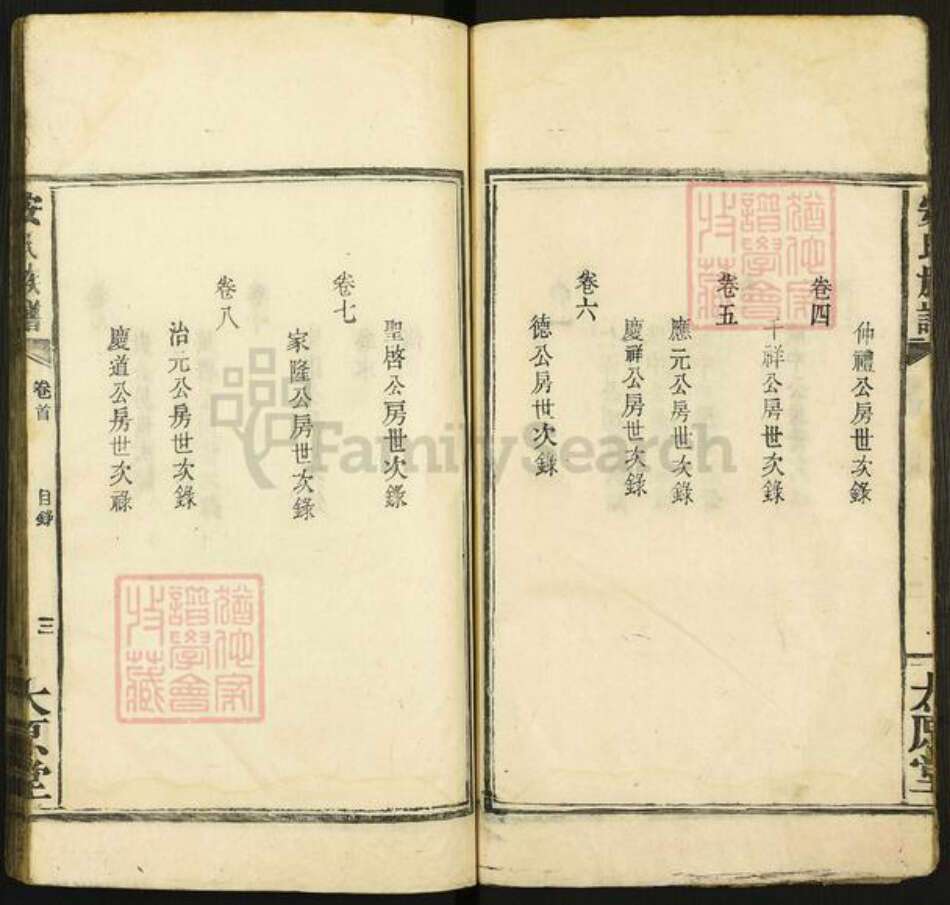 仲禮公房世次錄
卷四
千祥公房世次錄
卷五
應元公房世次錄
慶祥公房世次錄
卷六
德公房世次錄
聖啓公房世次錄
卷七
家隆公房世次錄
卷八
治元公房世次錄
慶道公房世次祿
安氏族譜
卷首
目錄
三
太原堂
安氏族譜
太原堂
猶他家
譜學會
收藏
猶他家
譜學會
收藏
FamilySearch